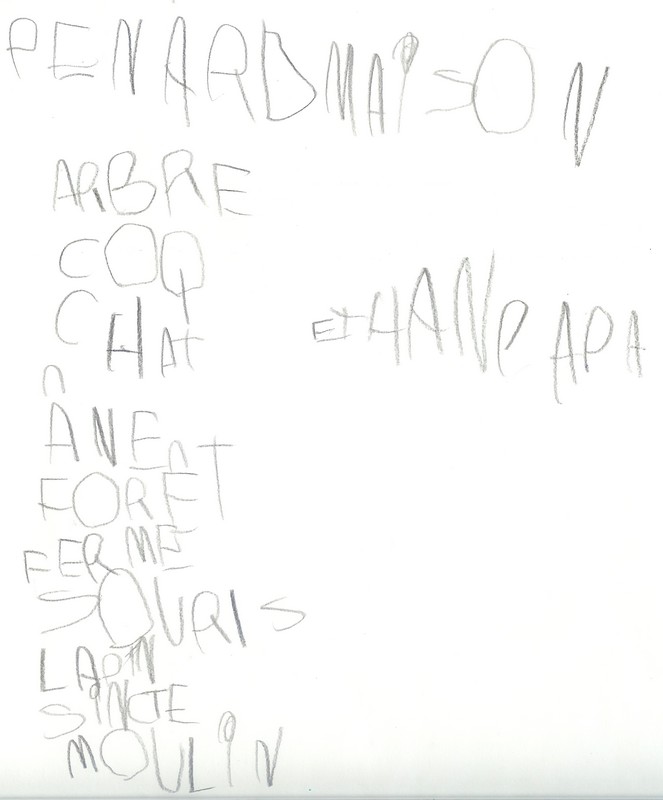 RENARD MAISON
ARBRE
COQ
CHAT
ETHAN PAPA
ÂNE
FORÊT
FERME
SOURIS
LAPIN
SINGE
MOULIN